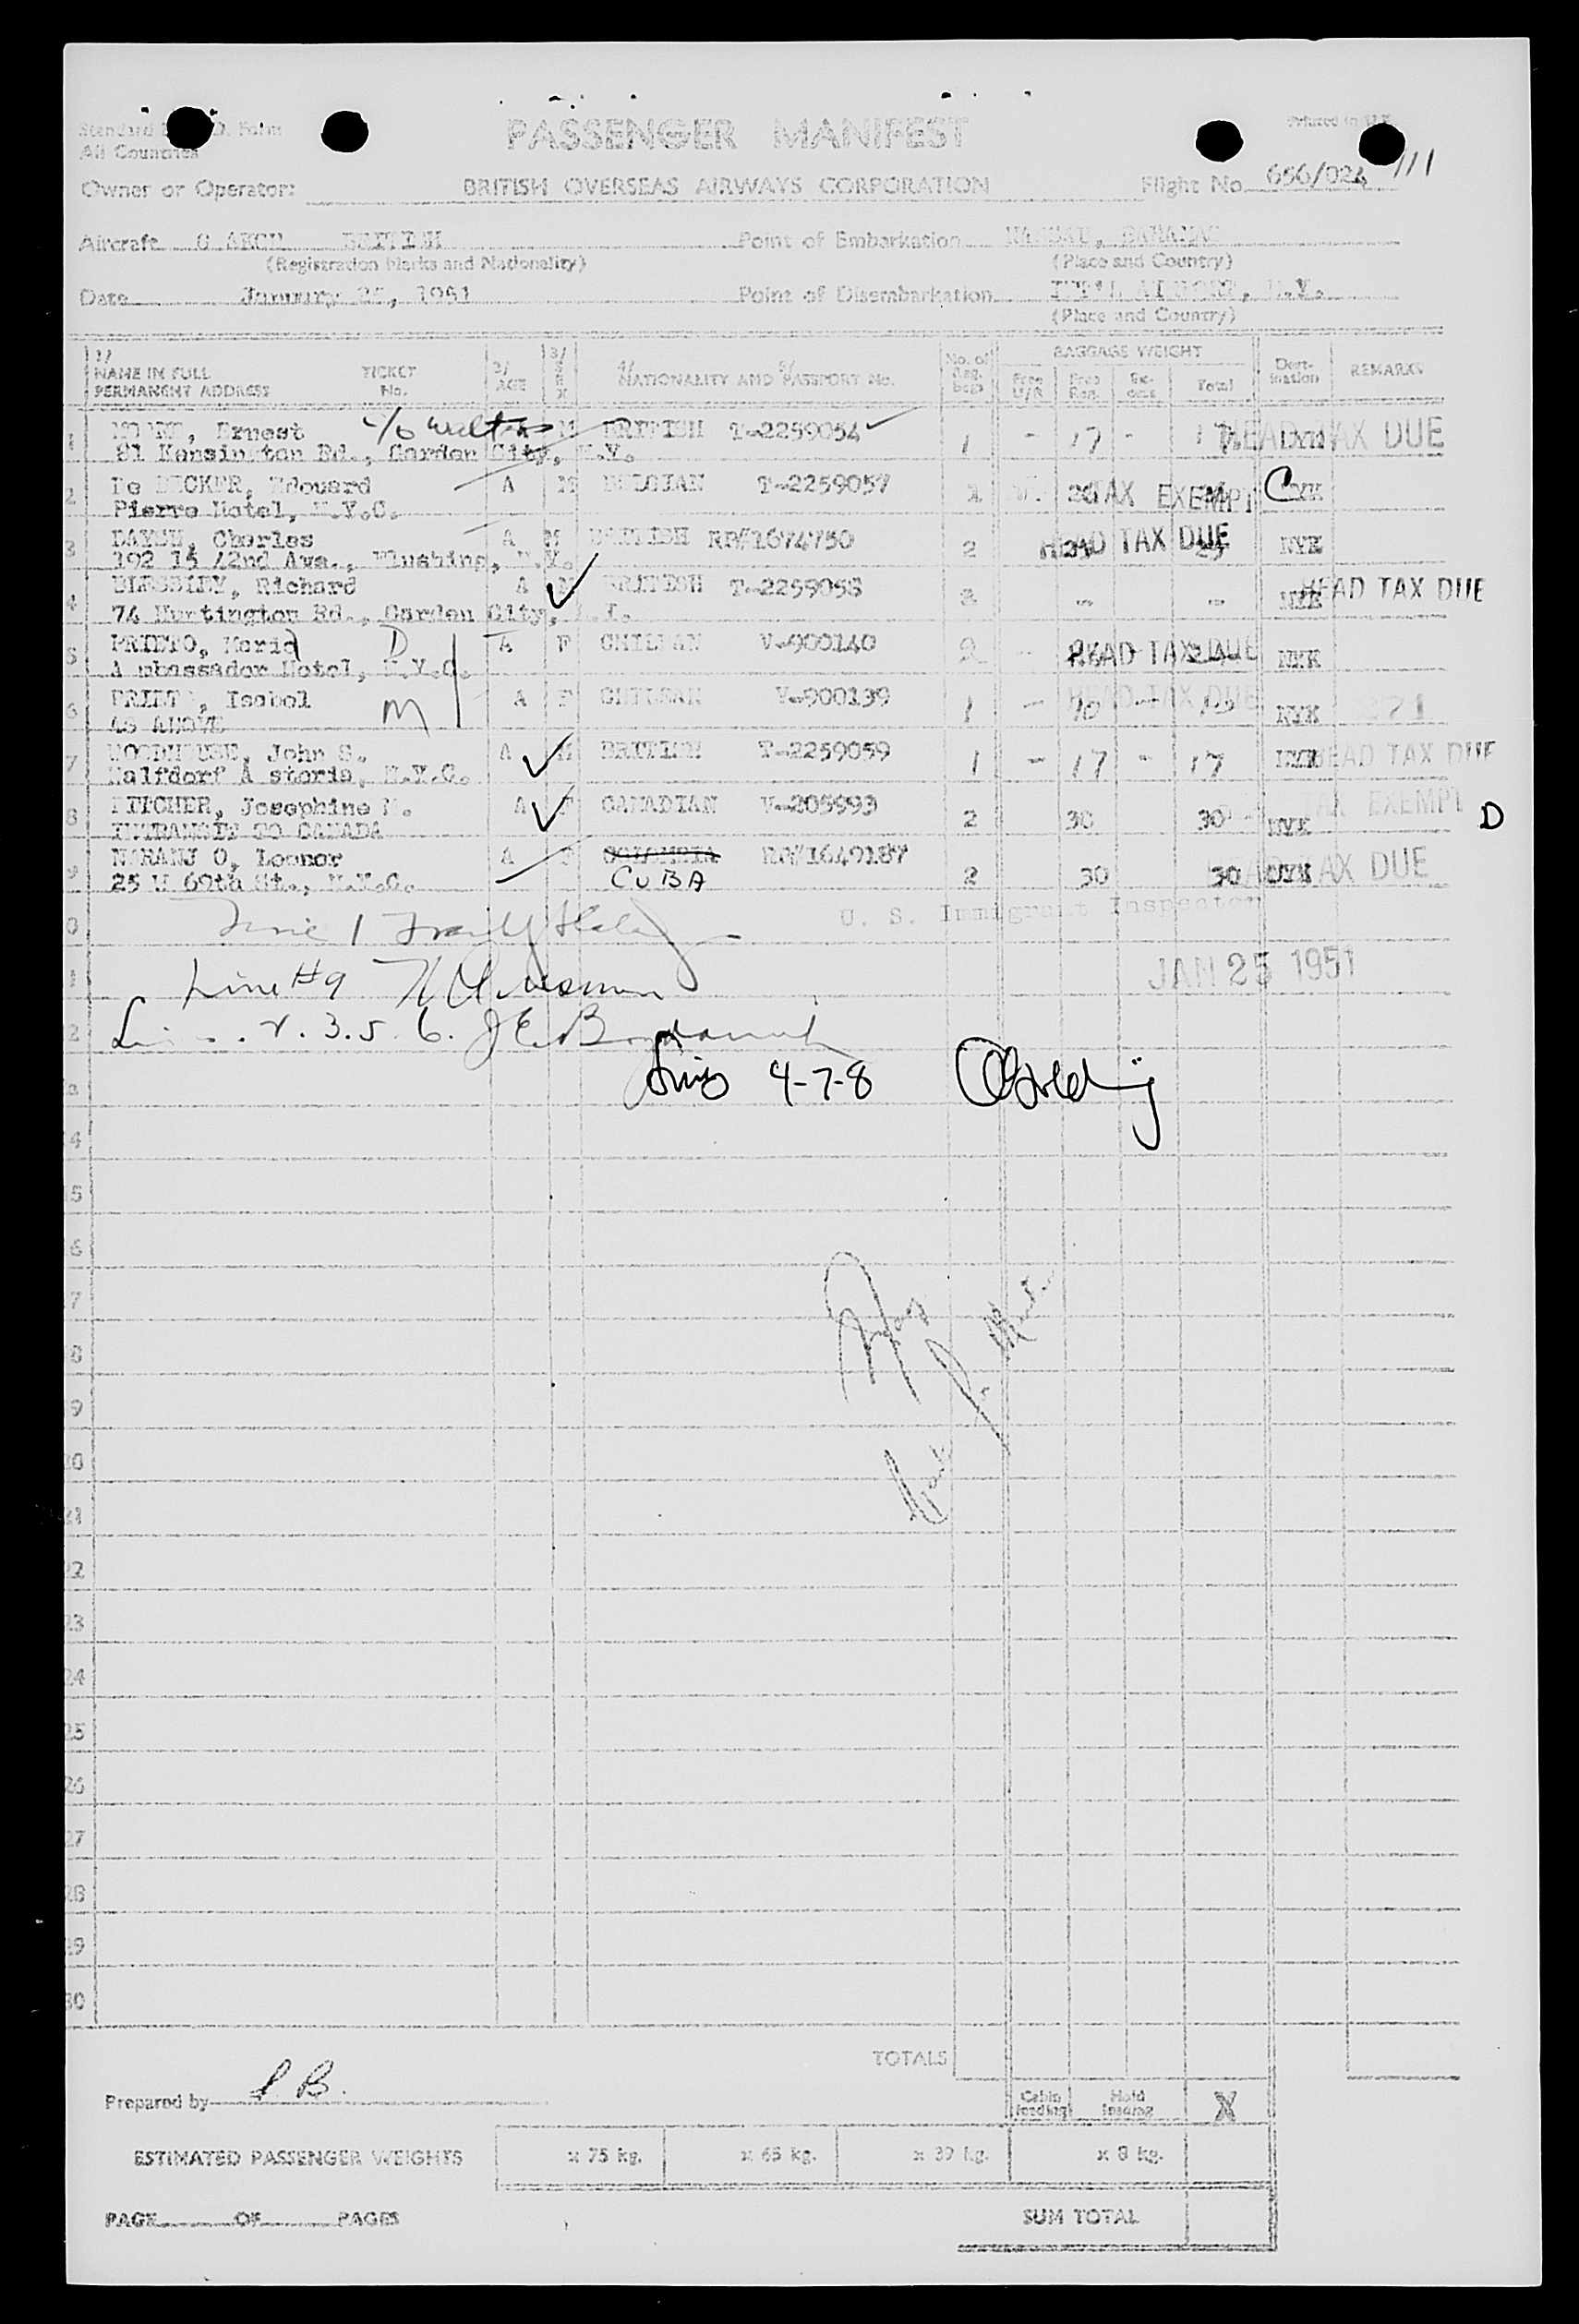 Standard D. Form
All Countries
PASSENGER MANIFEST
Printed in U.K.
Owner or Operator: BRITISH OVERSEAS AIRWAYS CORPORATION Flight No. 656/024 111
Aircraft G AKGM BRITISH Point of Embarkation NASSAU, BAHAMAS
(Registration Marks and Nationality) (Place and Country)
Date January 25, 1951 Point of Disembarkation INT'L AIRPORT, N.Y.
(Place and Country)
1/ NAME IN FULL PERMANENT ADDRESS TICKET No. 2/ AGE 3/ SEX 4/ NATIONALITY AND 5/ PASSPORT No. No. of Reg. bags BAGGAGE WEIGHT Free U/R Free Reg. Ex-cess Total Dest-ination REMARKS
1 Ernest c/o Walters M BRITISH T-2259054 1 - 17 - 17 NYK HEAD TAX DUE
81 Kensington Rd., Garden City, N.Y.
2 De BECKER, Edouard A M BELGIAN T-2259057 TAX EXEMPT C NYK
Pierre Hotel, N.Y.C.
3 Charles A M BRITISH RP#1674750 2 25 HEAD TAX DUE 25 NYK
192 15 42nd Ave., Flushing, N.Y.
4 Richard A M BRITISH T-2259058 2 - - NYK HEAD TAX DUE
74 Huntington Rd., Garden City, L.I.
5 PRIETO, Maria D A F CHILEAN V-900140 2 - HEAD TAX DUE NYK
A mbassador Hotel, N.Y.C.
6 PRIETO, Isabel M A F CHILEAN V-900139 1 - 10 - 10 HEAD TAX DUE NYK
AS ABOVE
7 WOODHOUSE, John S. A M BRITISH T-2259059 1 - 17 - 17 NYK HEAD TAX DUE
Walfdorf A storia, N.Y.C.
8 PITCHER, Josephine M. A F CANADIAN V-205993 2 30 30 NYK TAX EXEMPT D
INTRANSIT TO CANADA
9 NARANJ O, Leonor A F COLOMBIA RP#1649187 2 30 30 NYK HEAD TAX DUE
25 W 69th St., N.Y.C. CUBA
0 Line 1
U. S. Immigrant Inspector
1 Line #9
JAN 25 1951
2 2. 3. 5. 6.
3 Lines 4-7-8
4
5
6
7
8
9
20
21
22
23
24
25
26
27
28
29
30
TOTALS
Prepared by P.B.
Cabin loading Hold loading X
ESTIMATED PASSENGER WEIGHTS x 75 kg. x 65 kg. x 39 kg. x 8 kg.
PAGE OF PAGES SUM TOTAL